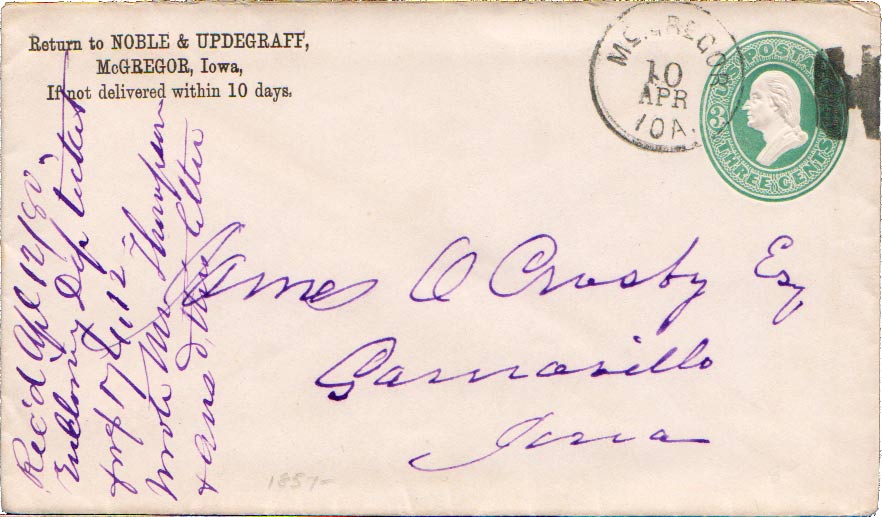 Return to NOBLE & UPDEGRAFF,
McGREGOR, Iowa,
If not delivered within 10 days.
McGREGOR
10
APR
IOA.
U.S. POSTAGE
3 3
THREE CENTS
James O Crosby Esq
Garnavillo
Iowa
Rec'd Apl 12/80
Enclosing Dep ticket
for 17
wrote Mr Thompson
& ans'd this letter
1857-